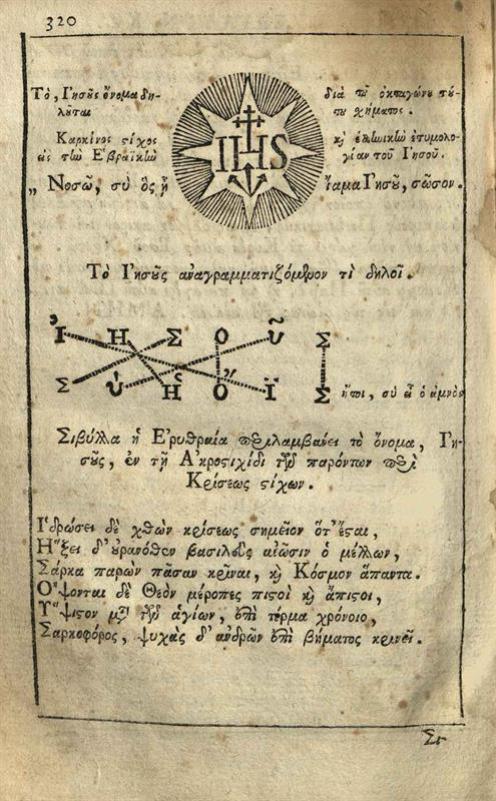 320
Τὸ, Ἰησοῦς ὄνομα δη-
λοῦται
διὰ τῦ ὀκταγώνυ τύ-
που χήματος.
IHS
Καρκῖνος ϛίχος
εἰς τὼ Ἑβραϊκὼ
κ̀ ἑλλωικὼ ἐτυμολο-
γίαν τοῦ Ἰησοῦ.
„ Νοσῶ, σὺ ὃς ἦ ἴαμα Ἰησοῦ, σῶσον.
Τὸ Ἰησοῦς ἀναγραμματιζόμενον τὶ δηλοῖ.
Ἰ Η Σ Ο Υ͂ Σ
Σ Ὑ Ἦ Ὅ Ϊ Σ ἤτοι, σὺ εἶ ὁ ἀμνὸς
Σιβύλλα ἡ Ἐρυθραία περιλαμβάνει τὸ ὄνομα, Ἰη-
σοῦς, ἐν τῇ Ἀκροϛιχίδι τῶν παρόντων περὶ
Κρίσεως ϛίχων.
Ἱδρώσει δὲ χθὼν κρίσεως σημεῖον ὅτ' ἔϛαι,
Ἥξει δ' οὐρανόθεν βασιλεὺς αἰῶσιν ὁ μέλλων,
Σάρκα παρὼν πᾶσαν κρῖναι, κ̀ Κόσμον ἅπαντα.
Ὄψονται δὲ Θεὸν μέροπες πιϛοὶ κ̀ ἄπιϛοι,
Ὕψιϛον μετὰ τῶν ἁγίων, ἐπὶ τέρμα χρόνοιο,
Σαρκοφόρος, ψυχὰς δ' ἀνδρῶν ἐπὶ βήματος κρινεῖ.